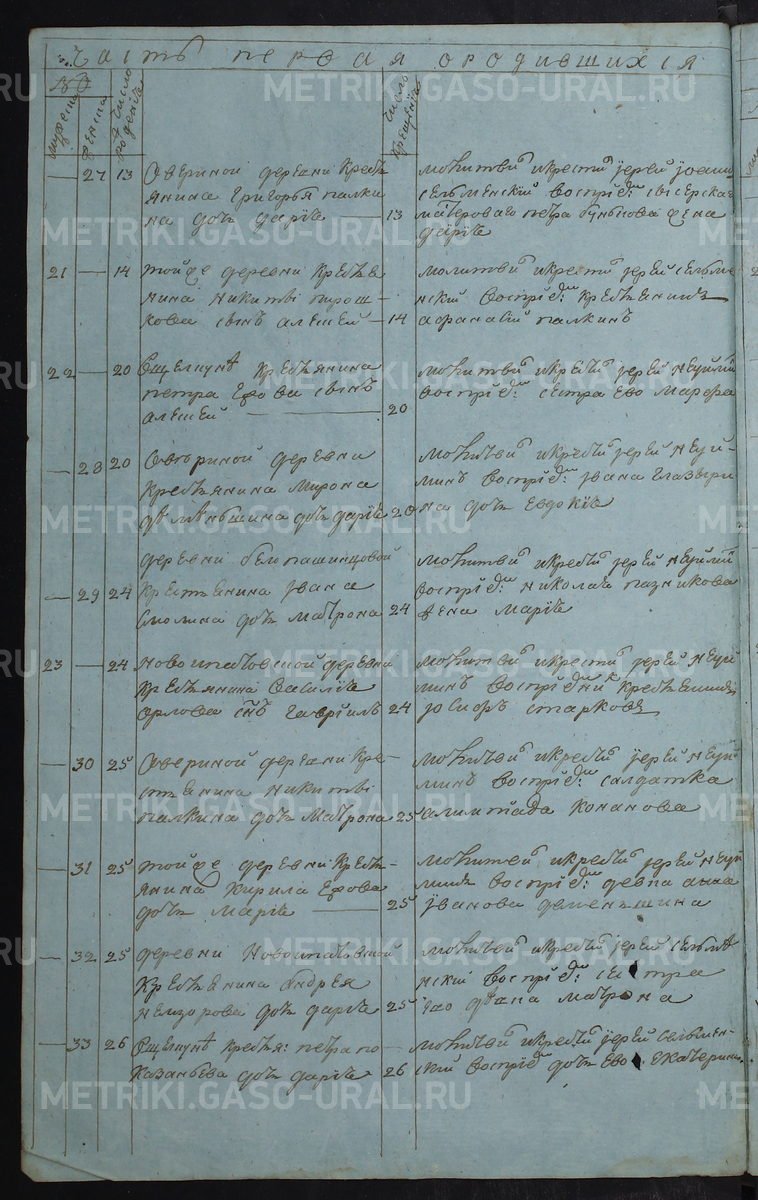 Часть первая ородившихся
№
мужеска
женска
число рождения
число крещения
27 13 Овериной деревни кресть
янина Григорья палки
на дочь дарiя 13
молитвил икрестил iерей iоанн
сельменский воспрiе:
петра жена
дарiя
21 14 тойже деревни крестья
нина Никиты пирош-
кова сынъ алексей 14
молитвил икрестил iерей сельме
нский воспрiе: крестьянинъ
афанасий палкинъ
22 20 Ощепкуля крестьянина
петра Ефова сынъ
алексей 20
молитвил икрестил iерей неуймин
воспрiе: сестра Ево Марфа
28 20 Овериной деревни
крестьянина Мирона
деменьшина дочь дарiя 20
молитвил икрестил iерей неуй-
минъ воспрiе: Ивана Глазыри
на дочь Евдокiя
29 24 деревни белопашинцовой
крестьянина Ивана
Смолина дочь Матрона 24
молитвил икрестил iерей неуймин
воспрiе: николая пазникова
жена Марiя
23 24 новоипатовской деревни
крестьянина Василiя
орлова сынъ Гаврiилъ 24
молитвил икрестил iерей неуй
минъ воспрiемник крестьянинъ
старковъ
30 25 Овериной деревни кре-
стьянина никиты
палкина дочь Матрона 25
молитвил икрестил iерей неуй
минъ воспрiе: салдатка
Конанова
31 25 тойже деревни кресть-
янина Кирила Ефова
дочь Марiя 25
молитвил икрестил iерей неуй
минъ воспрiе: девка анна
Иванова деменьшина
32 25 деревни Новоипатовской
крестьянина андрея
немзорова дочь дарiя 25
молитвил икрестил iерей сельме
нский воспрiе: сестра
Ево Матрона
33 26 крестья: петра по
казаньева дочь дарiя 26
молитвил икрестил iерей сельмен-
ский воспрiе: дочь Ево Екатерина
METRIKI.GASO-URAL.RU